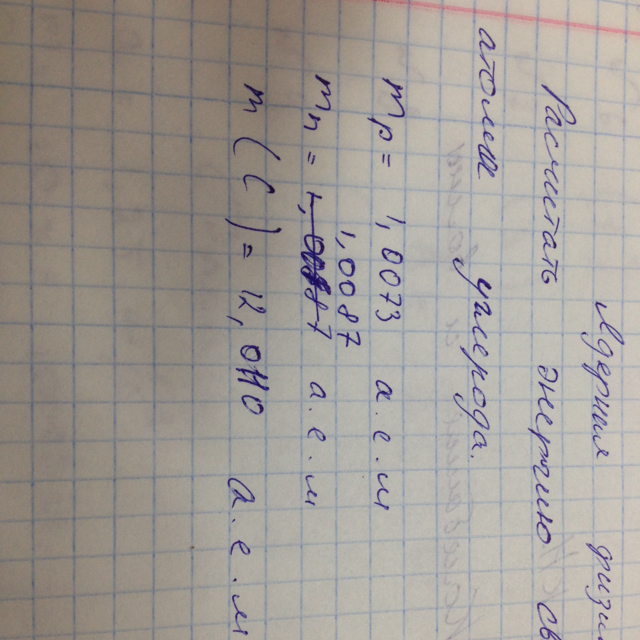 Ядерная физи
Расчитать энергию св
атома углерода.
mp = 1,0073 а.е.м
1,0087
mn = а.е.м
m(C) = 12,0110 а.е.м